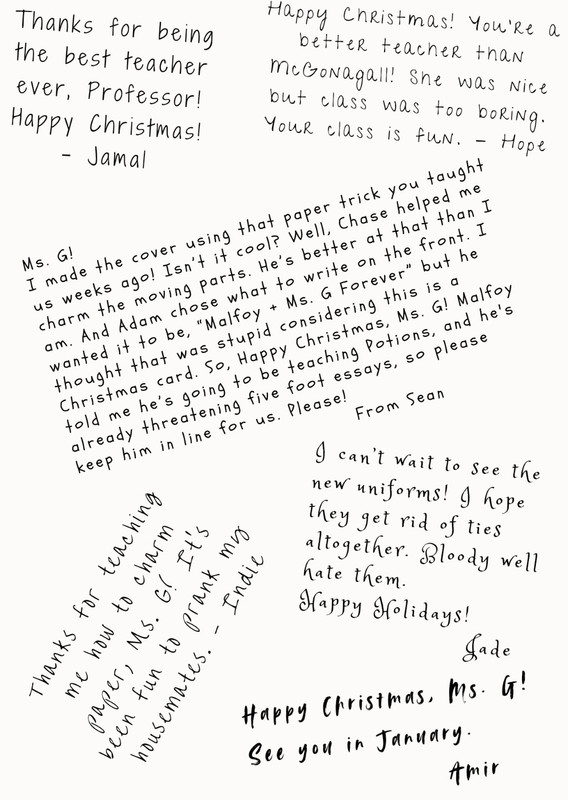 Thanks for being
the best teacher
ever, Professor!
Happy Christmas!
- Jamal
Happy Christmas! You're a
better teacher than
McGonagall! She was nice
but class was too boring.
Your class is fun. - Hope
Ms. G!
I made the cover using that paper trick you taught
us weeks ago! Isn't it cool? Well, Chase helped me
charm the moving parts. He's better at that than I
am. And Adam chose what to write on the front. I
wanted it to be, "Malfoy + Ms. G Forever" but he
thought that was stupid considering this is a
Christmas card. So, Happy Christmas, Ms. G! Malfoy
told me he's going to be teaching Potions, and he's
already threatening five foot essays, so please
keep him in line for us. Please!
From Sean
I can't wait to see the
new uniforms! I hope
they get rid of ties
altogether. Bloody well
hate them.
Happy Holidays!
Jade
Thanks for teaching
me how to charm
paper, Ms. G! It's
been fun to prank my
housemates. - Indie
Happy Christmas, Ms. G!
See you in January.
Amir